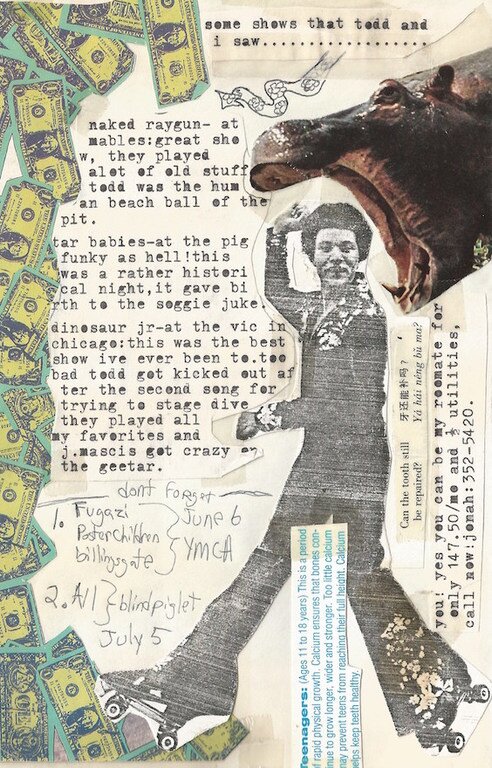 some shows that todd and
i saw...................
naked raygun- at
mables:great sho
w, they played
alot of old stuff
todd was the hum
an beach ball of the
pit.
tar babies-at the pig
funky as hell!this
was a rather histori
cal night,it gave bi
rth to the soggie juke.
dinosaur jr-at the vic in
chicago:this was the best
show ive ever been to.too
bad todd got kicked out af
ter the second song for
trying to stage dive
they played all
my favorites and
j.mascis got crazy on
the geetar.
dont forget
1. Fugazi
Poster Children
billingsgate
June 6
YMCA
2. All
blindpiglet
July 5
牙还能补吗？
Yá hái néng bǔ ma?
Can the tooth still
be repaired?
you! yes you can be my roomate for
only 147.50/mo and ½ utilities,
call now:jonah:352-5420.
Teenagers: (Ages 11 to 18 years) This is a period
of rapid physical growth. Calcium ensures that bones con-
tinue to grow longer, wider and stronger. Too little calcium
may prevent teens from reaching their full height. Calcium
helps keep teeth healthy.